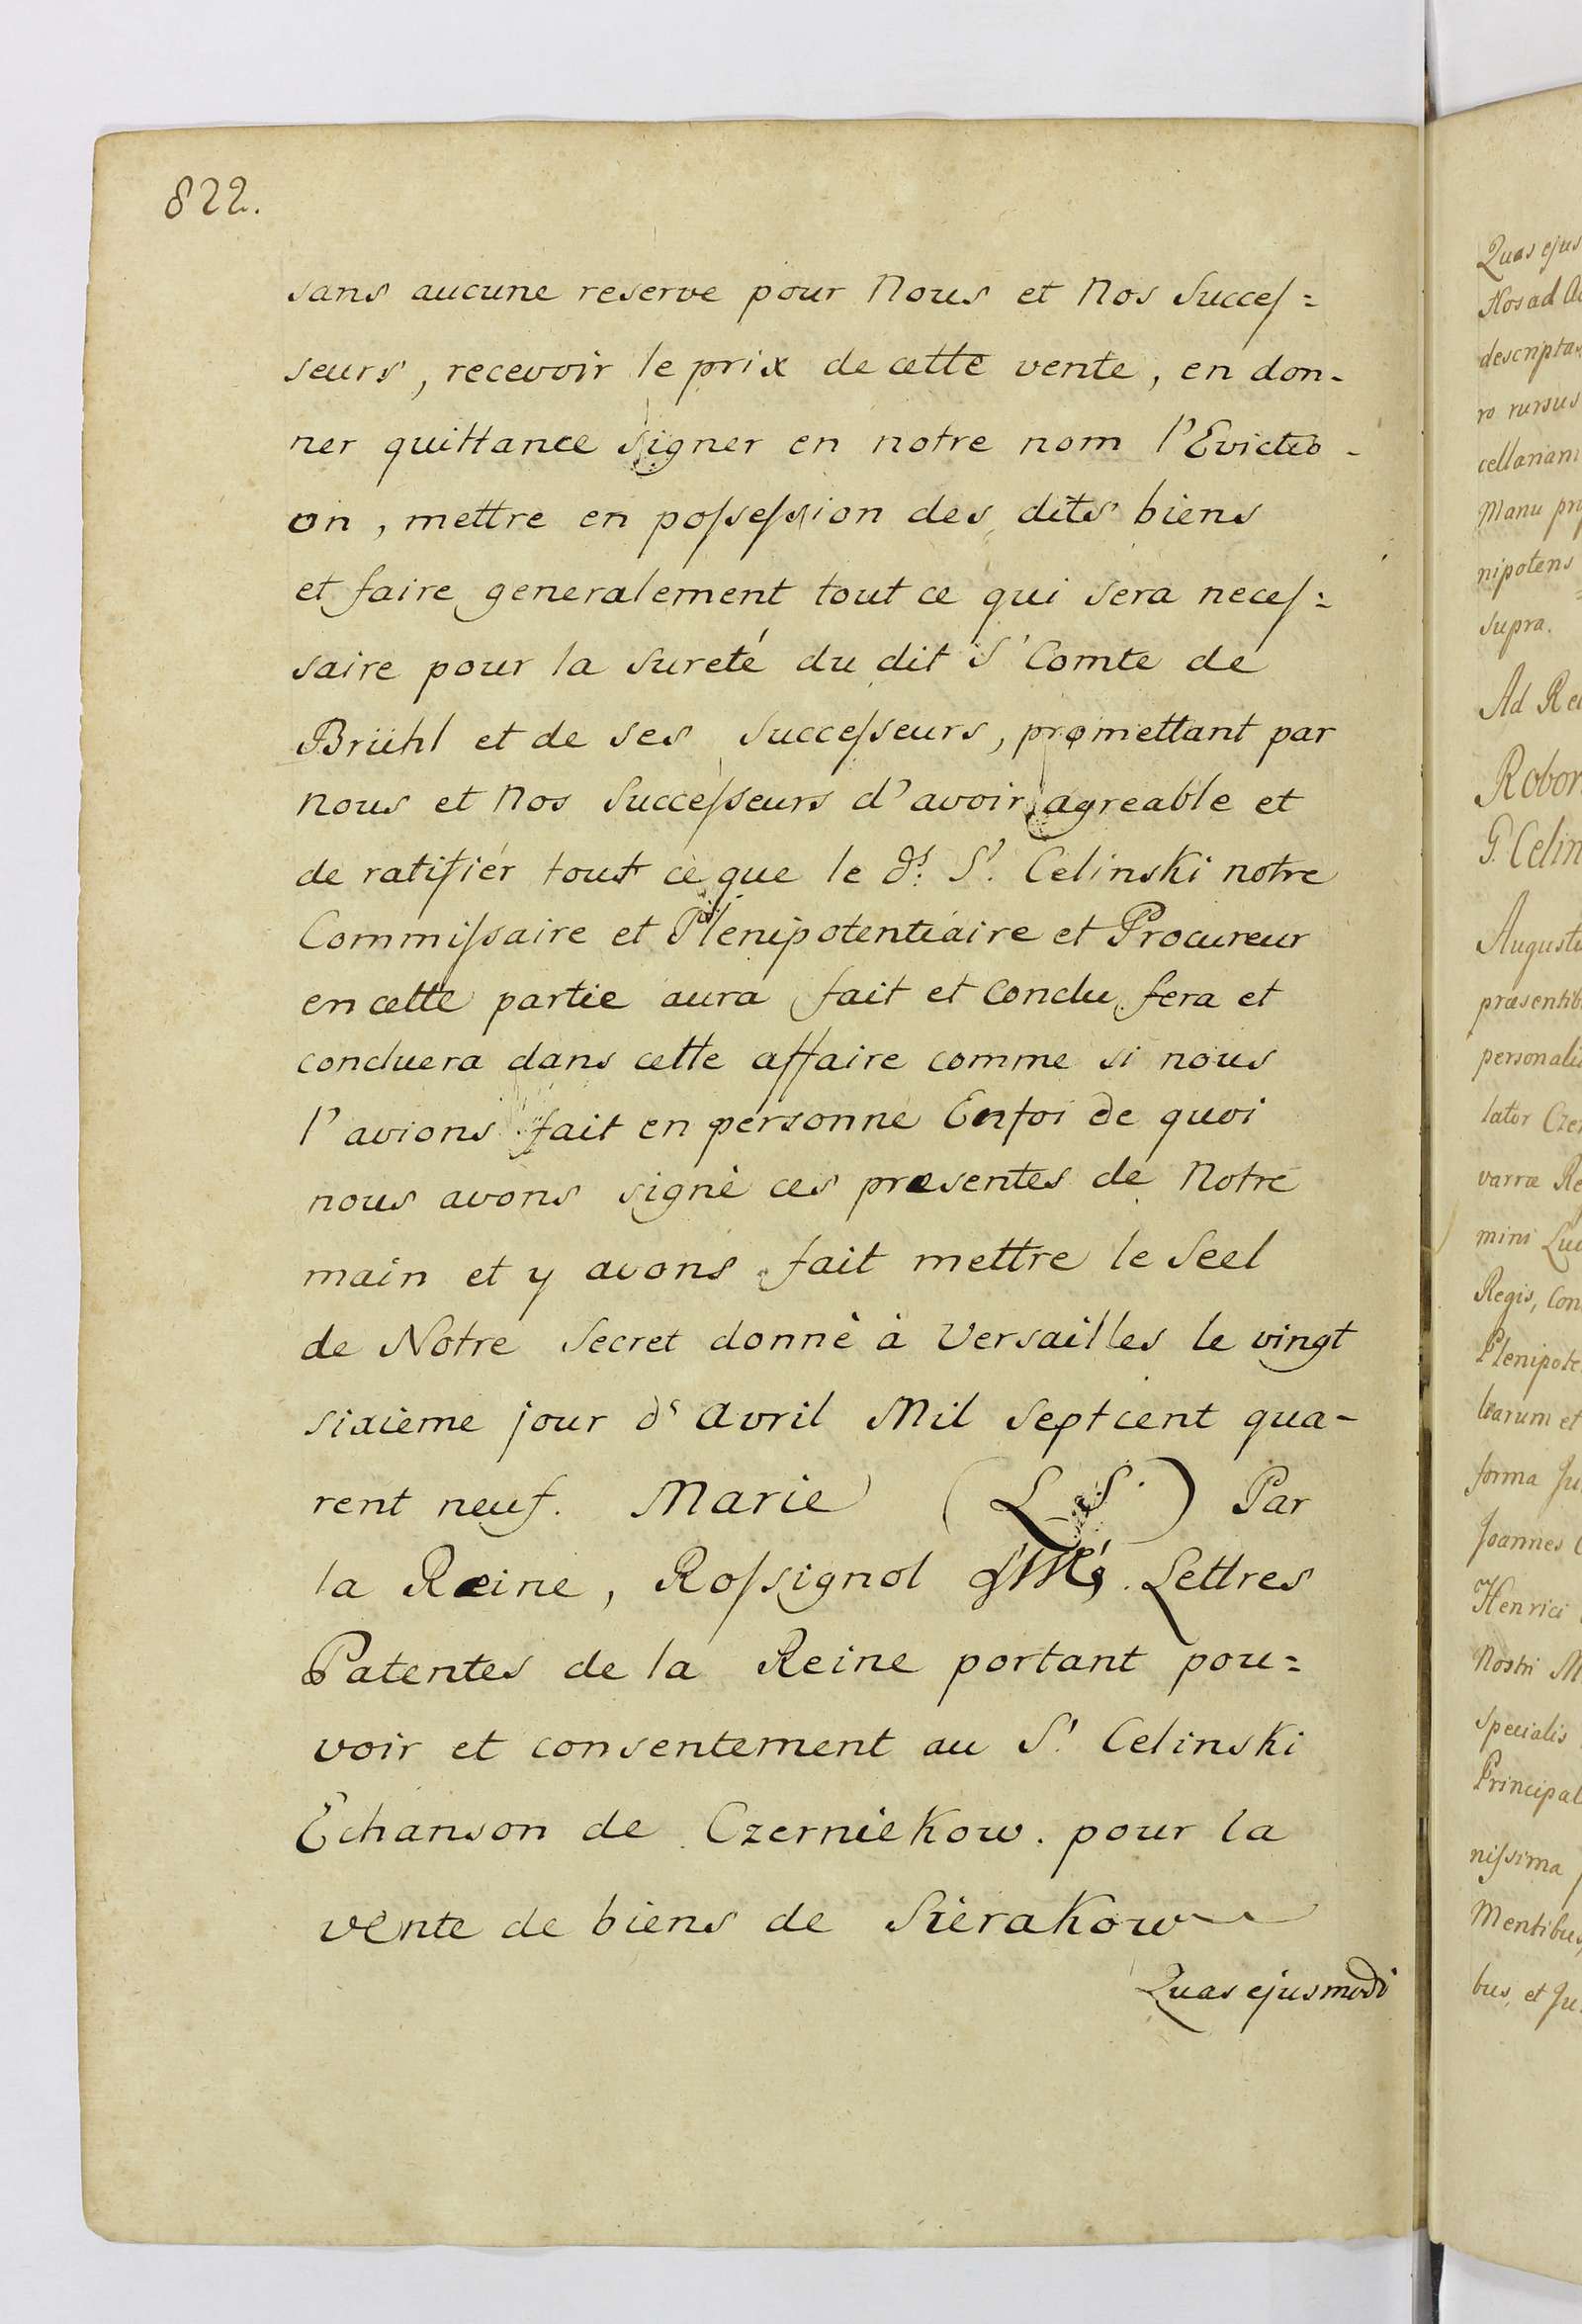 822.
sans aucune reserve pour Nous et Nos Succes=
seurs, recevoir le prix de cette vente, en don-
ner quittance signer en notre nom l'Evicti-
on, mettre en possession des dits biens
et faire generalement tout ce qui sera neces=
saire pour la sureté du dit Sr Comte de
Brühl et de ses Successeurs, promettant par
nous et Nos Successeurs d'avoir agreable et
de ratifiér tout ce que le dt. Sr. Celinski notre
Commissaire et Plenipotentiaire et Procureur
en cette partie aura fait et conclu, fera et
concluera dans cette affaire comme si nous
l'avions fait en personne En foi de quoi
nous avons signè ces præsentes de Notre
main et y avons fait mettre le Seel
de Notre Secret donnè à Versailles le vingt
sixieme jour ds Avril Mil Septcent qua-
rent neuf. Marie (L.S.) Par
la Reine, Rossignol Lettres
Patentes de la Reine portant pou=
voir et consentement au Sr. Celinski
Echanson de Czerniekow. pour la
vente de biens de Sierakow
Quas ejusmodi
Quas ejus
Nos ad Ac
descriptas
ro rursus
cellariam
Manu pro
nipotens
supra.
Ad Re
Robor
G. Celin
Augustu
præsentib
personali
lator Cze
varræ Re
mini Lu
Regis, Con
Plenipote
learum et
forma Ju
Joannes
Henrici
Nostri M
Specialis
Principal
nissima
Mentibus
bus, et Ju